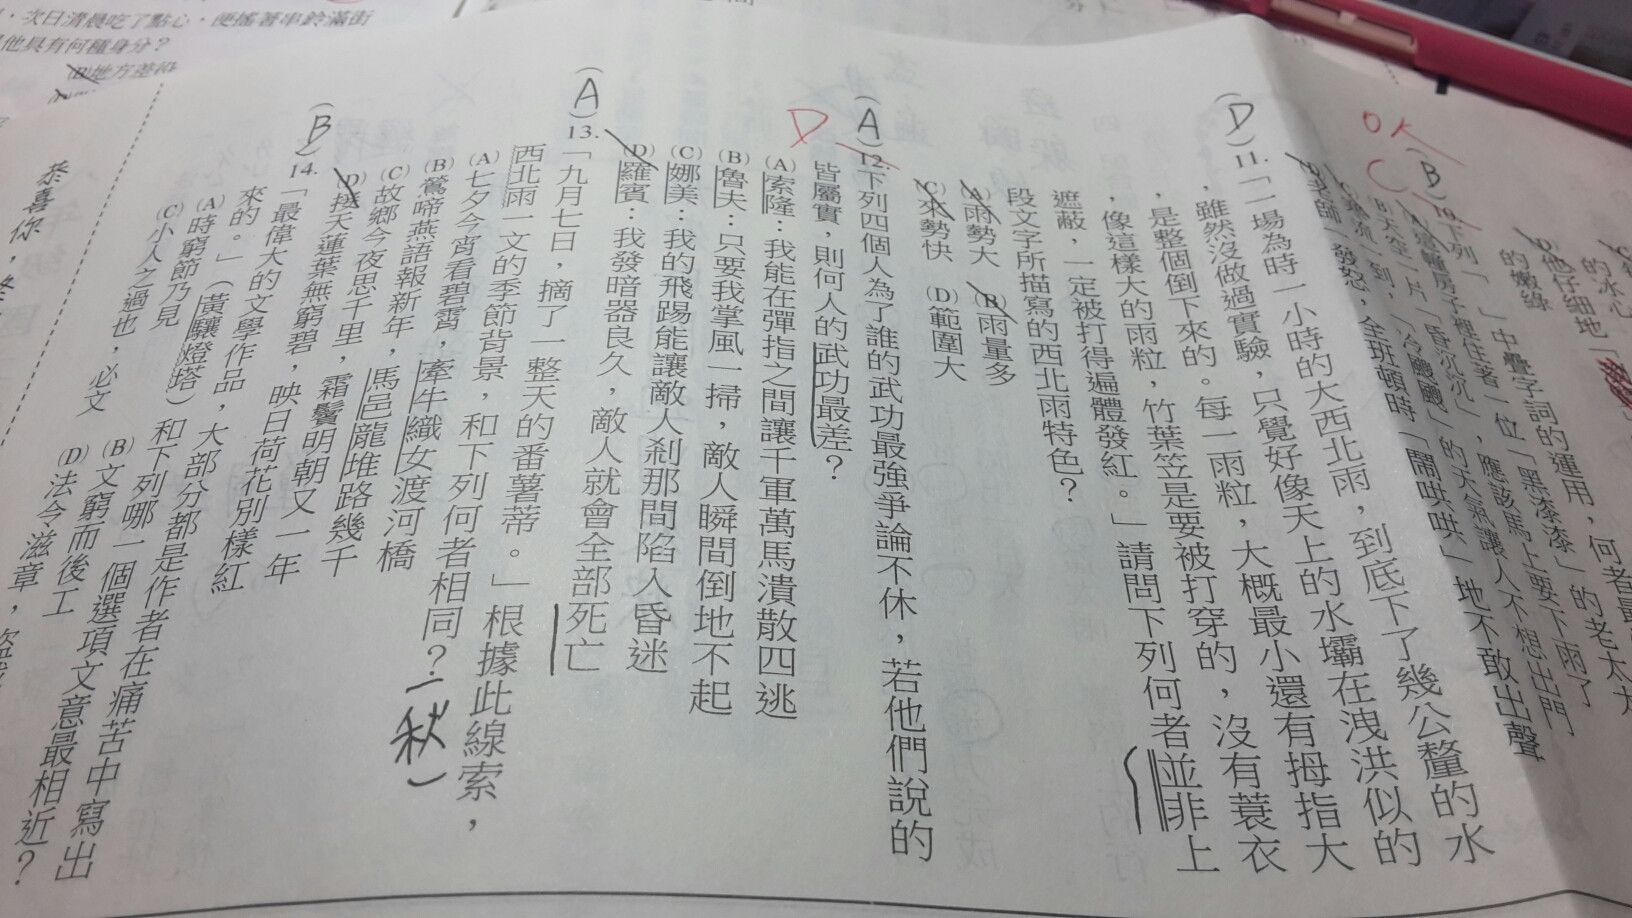 ，次日清晨吃了點心，便搖著串鈴滿街
他具有何種身分？
(B)地方差役
的冰心
(D)他仔細地「
的嫩綠
OK
C
(B) 10.下列「 」中疊字詞的運用，何者最
(A)這幢房子裡住著一位「黑漆漆」的老太太
(B)天空一片「昏沉沉」，應該馬上要下雨了
(C)寒流一到，「冷颼颼」的天氣讓人不想出門
(D)老師一發怒，全班頓時「鬧哄哄」地不敢出聲
(D) 11.「一場為時一小時的大西北雨，到底下了幾公釐的水
，雖然沒做過實驗，只覺好像天上的水壩在洩洪似的
，是整個倒下來的。每一雨粒，大概最小還有拇指大
，像這樣大的雨粒，竹葉笠是要被打穿的，沒有蓑衣
遮蔽，一定被打得遍體發紅。」請問下列何者並非上
段文字所描寫的西北雨特色？
(A)雨勢大 (B)雨量多
(C)來勢快 (D)範圍大
D
(A) 12.下列四個人為了誰的武功最強爭論不休，若他們說的
皆屬實，則何人的武功最差？
(A)索隆：我能在彈指之間讓千軍萬馬潰散四逃
(B)魯夫：只要我掌風一掃，敵人瞬間倒地不起
(C)娜美：我的飛踢能讓敵人剎那間陷入昏迷
(D)羅賓：我發暗器良久，敵人就會全部死亡
(A) 13.「九月七日，摘了一整天的番薯蒂。」根據此線索，
西北雨一文的季節背景，和下列何者相同？(秋)
(A)七夕今宵看碧霄，牽牛織女渡河橋
(B)鶯啼燕語報新年，馬邑龍堆路幾千
(C)故鄉今夜思千里，霜鬢明朝又一年
(D)接天蓮葉無窮碧，映日荷花別樣紅
(B) 14.「最偉大的文學作品，大部分都是作者在痛苦中寫出
來的。」（黃驤燈塔）和下列哪一個選項文意最相近？
(A)時窮節乃見 (B)文窮而後工
(C)小人之過也，必文 (D)法令滋章，盜賊
恭喜你，